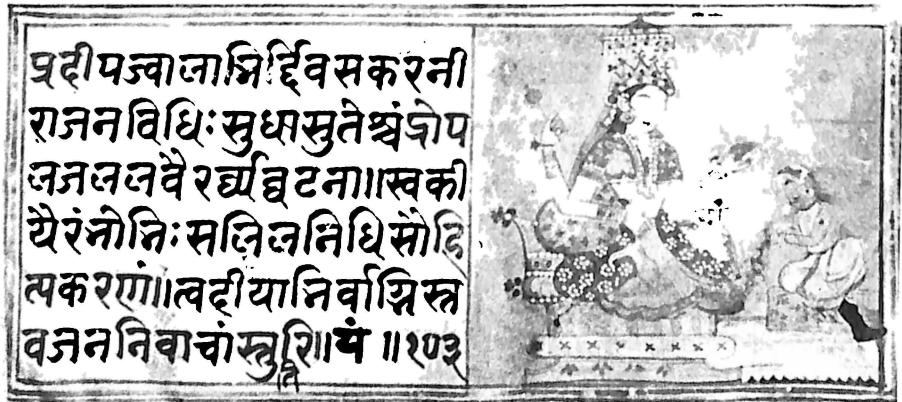 प्रदीपज्वालाभिर्द्दिवसकरनी
राजनविधिः सुधासुतेश्चंद्रोप
लजललवैरर्घ्यघटना॥स्वकी
यैरंभोभिः सलिलनिधिसोहि
त्यकरणं॥त्वदीयाभिर्वाग्भिस्त
वजननिवाचांस्तुतिरि॥यं॥१०३